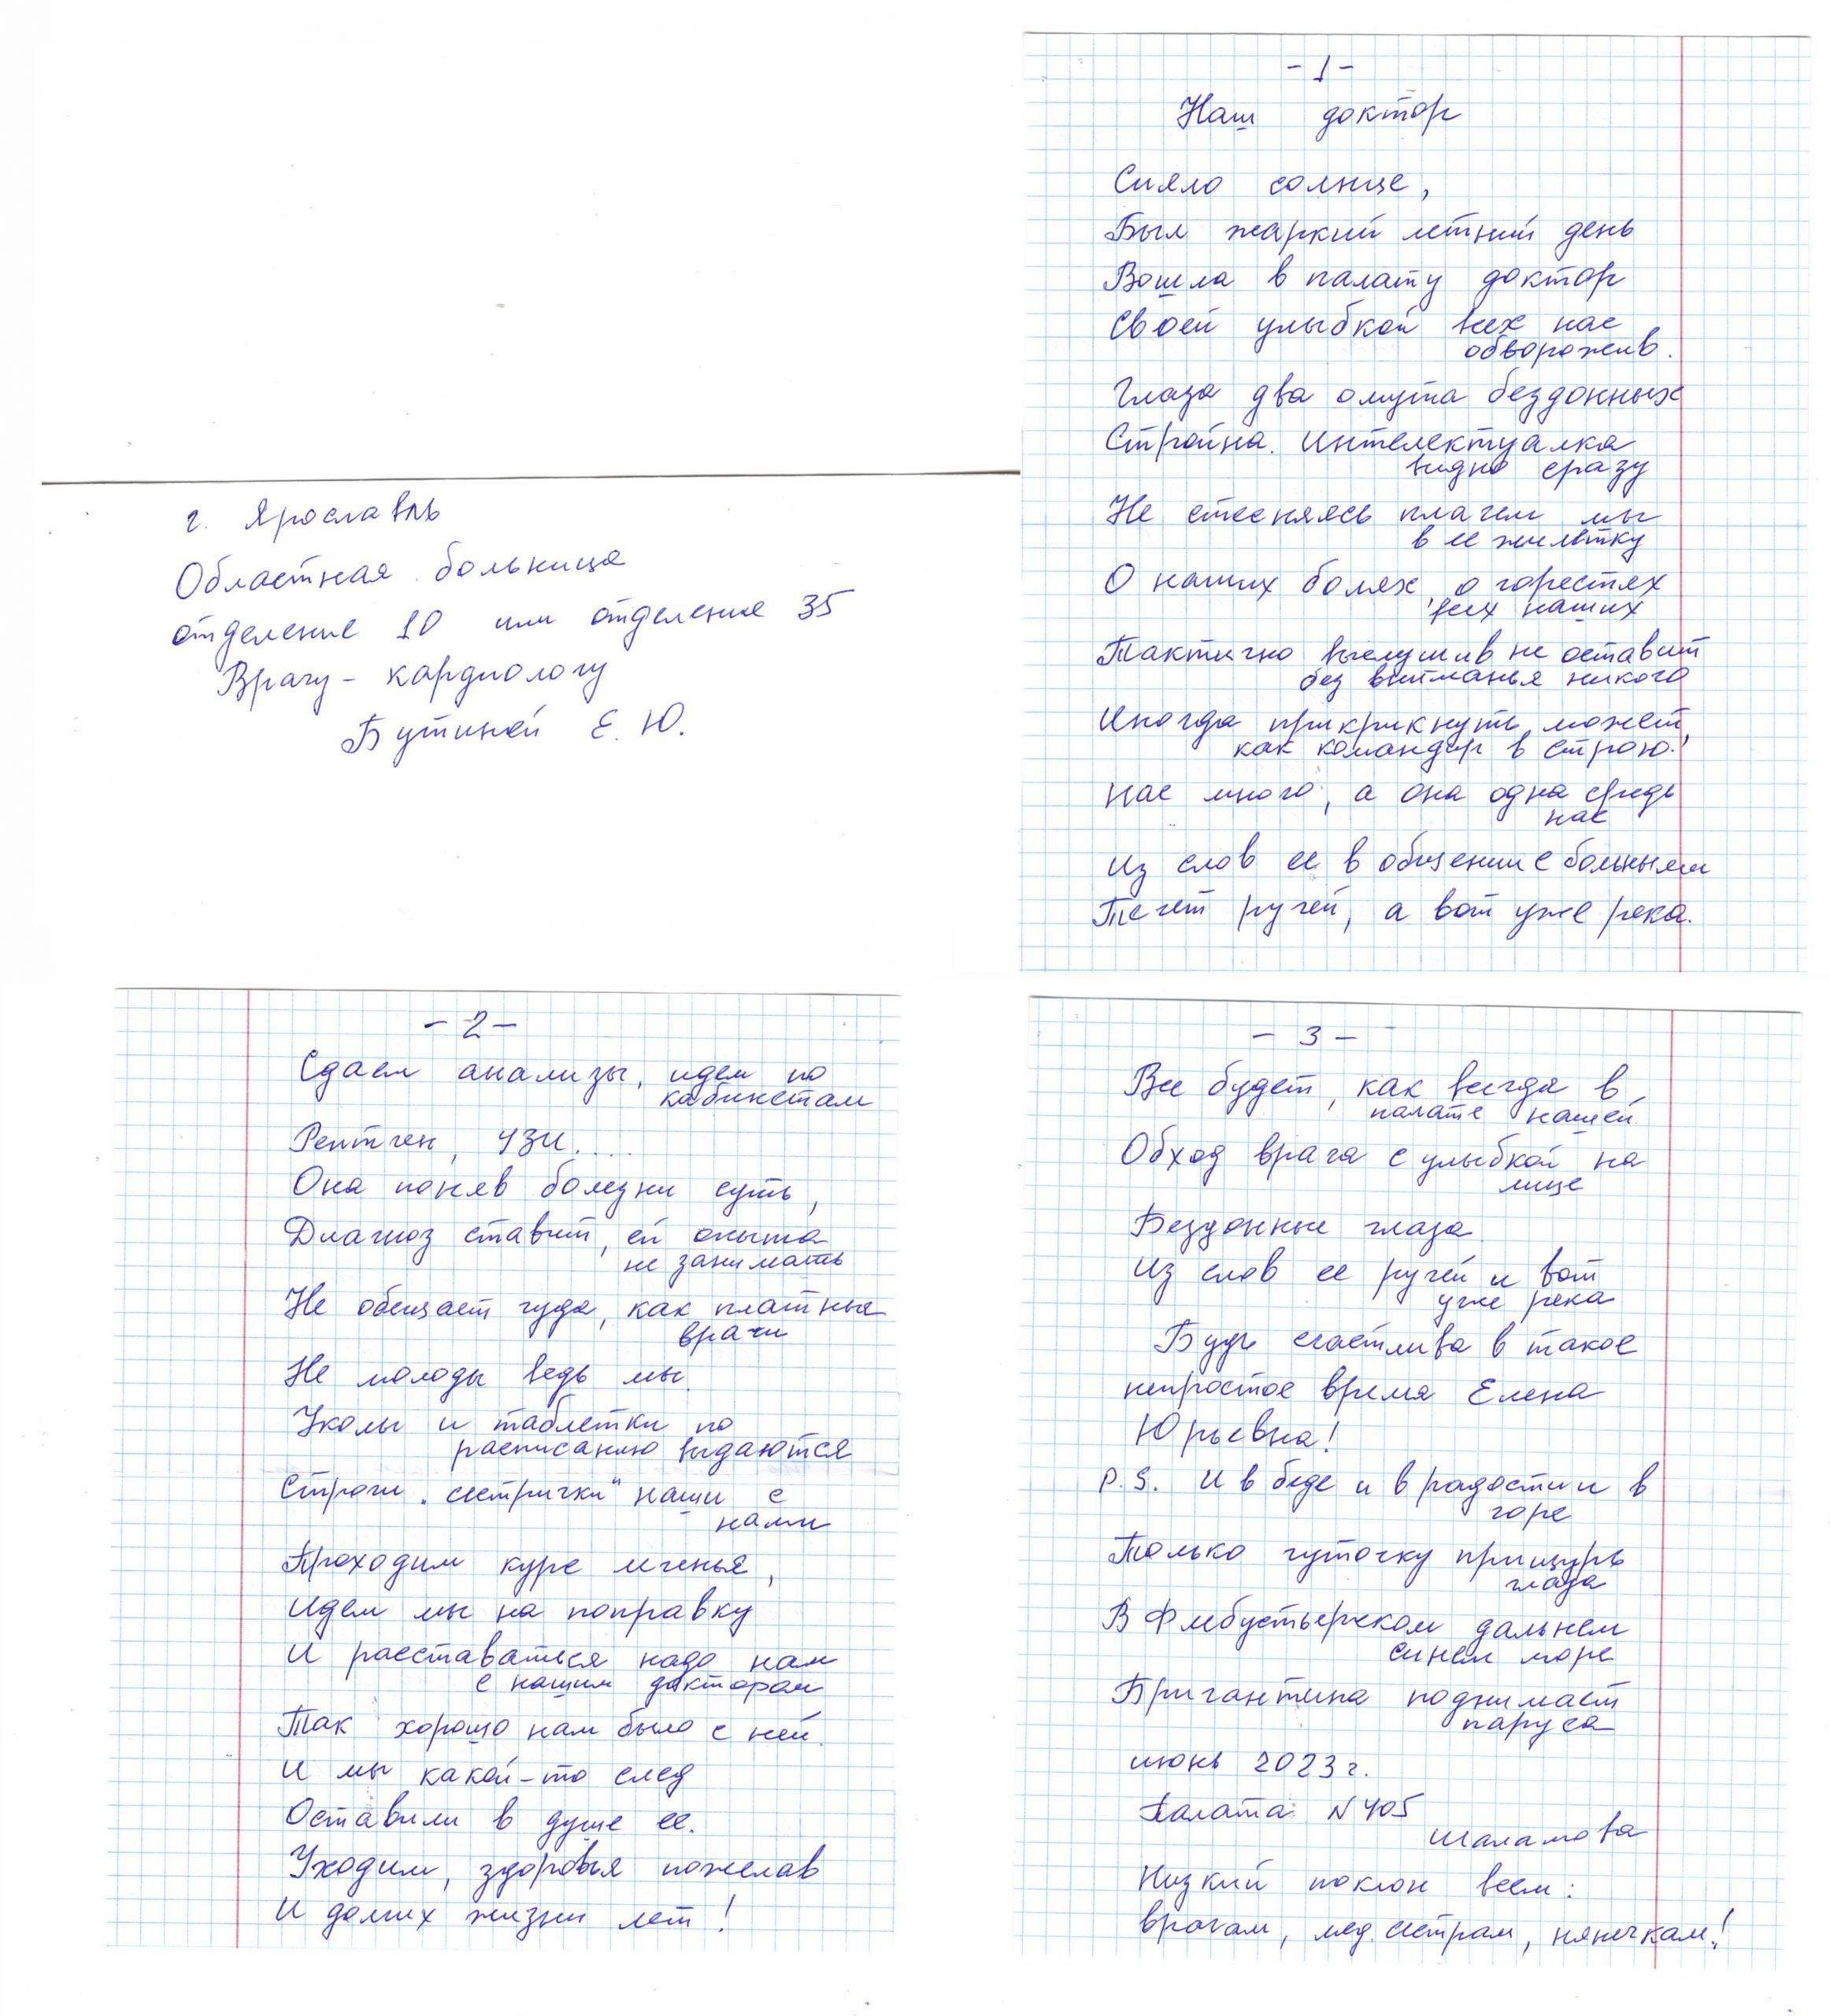 г. Ярославль
Областная больница
отделение 10 или отделение 35
Врачу - кардиологу
Бутиной Е. Ю.
- 1 -
Наш доктор
Сияло солнце,
Был жаркий летний день
Вошла в палату доктор
Своей улыбкой всех нас
обворожив.
Глаза два омута бездонных
Стройна. Интелектуалка
видно сразу
Не стесняясь плачем мы
в ее жилетку
О наших болях, о горестях
всех наших
Тактично выслушив не оставит
без вниманья никого
Иногда прикрикнуть может,
как командир в строю.
Нас много, а она одна средь
нас
Из слов ее в общении с больными
Течет ручей, а вот уже река.
- 2 -
Сдаем анализы, идем по
кабинетам
Рентген, УЗИ....
Она поняв болезни суть,
Диагноз ставит, ей опыта
не занимать
Не обещает чуда, как платные
врачи
Не молоды ведь мы.
Уколы и таблетки по
расписанию выдаются
Строги "сестрички" наши с
нами
Проходим курс леченья,
Идем мы на поправку
И расставаться надо нам
с нашим доктором
Так хорошо нам было с ней.
И мы какой-то след
Оставили в душе ее.
Уходим, здоровья пожелав
И долгих жизни лет!
- 3 -
Все будет, как всегда в
палате нашей
Обход врача с улыбкой на
лице
Бездонные глаза
Из слов ее ручей и вот
уже река
Будь счастлива в такое
непростое время Елена
Юрьевна!
P.S. И в беде и в радости и в
горе
Только чуточку прищурь
глаза
В Флибустьерском дальнем
синем море
Бригантина поднимает
паруса
июнь 2023 г.
Палата N 405
Шаламова
Низкий поклон всем:
врачам, мед. сестрам, нянечкам!